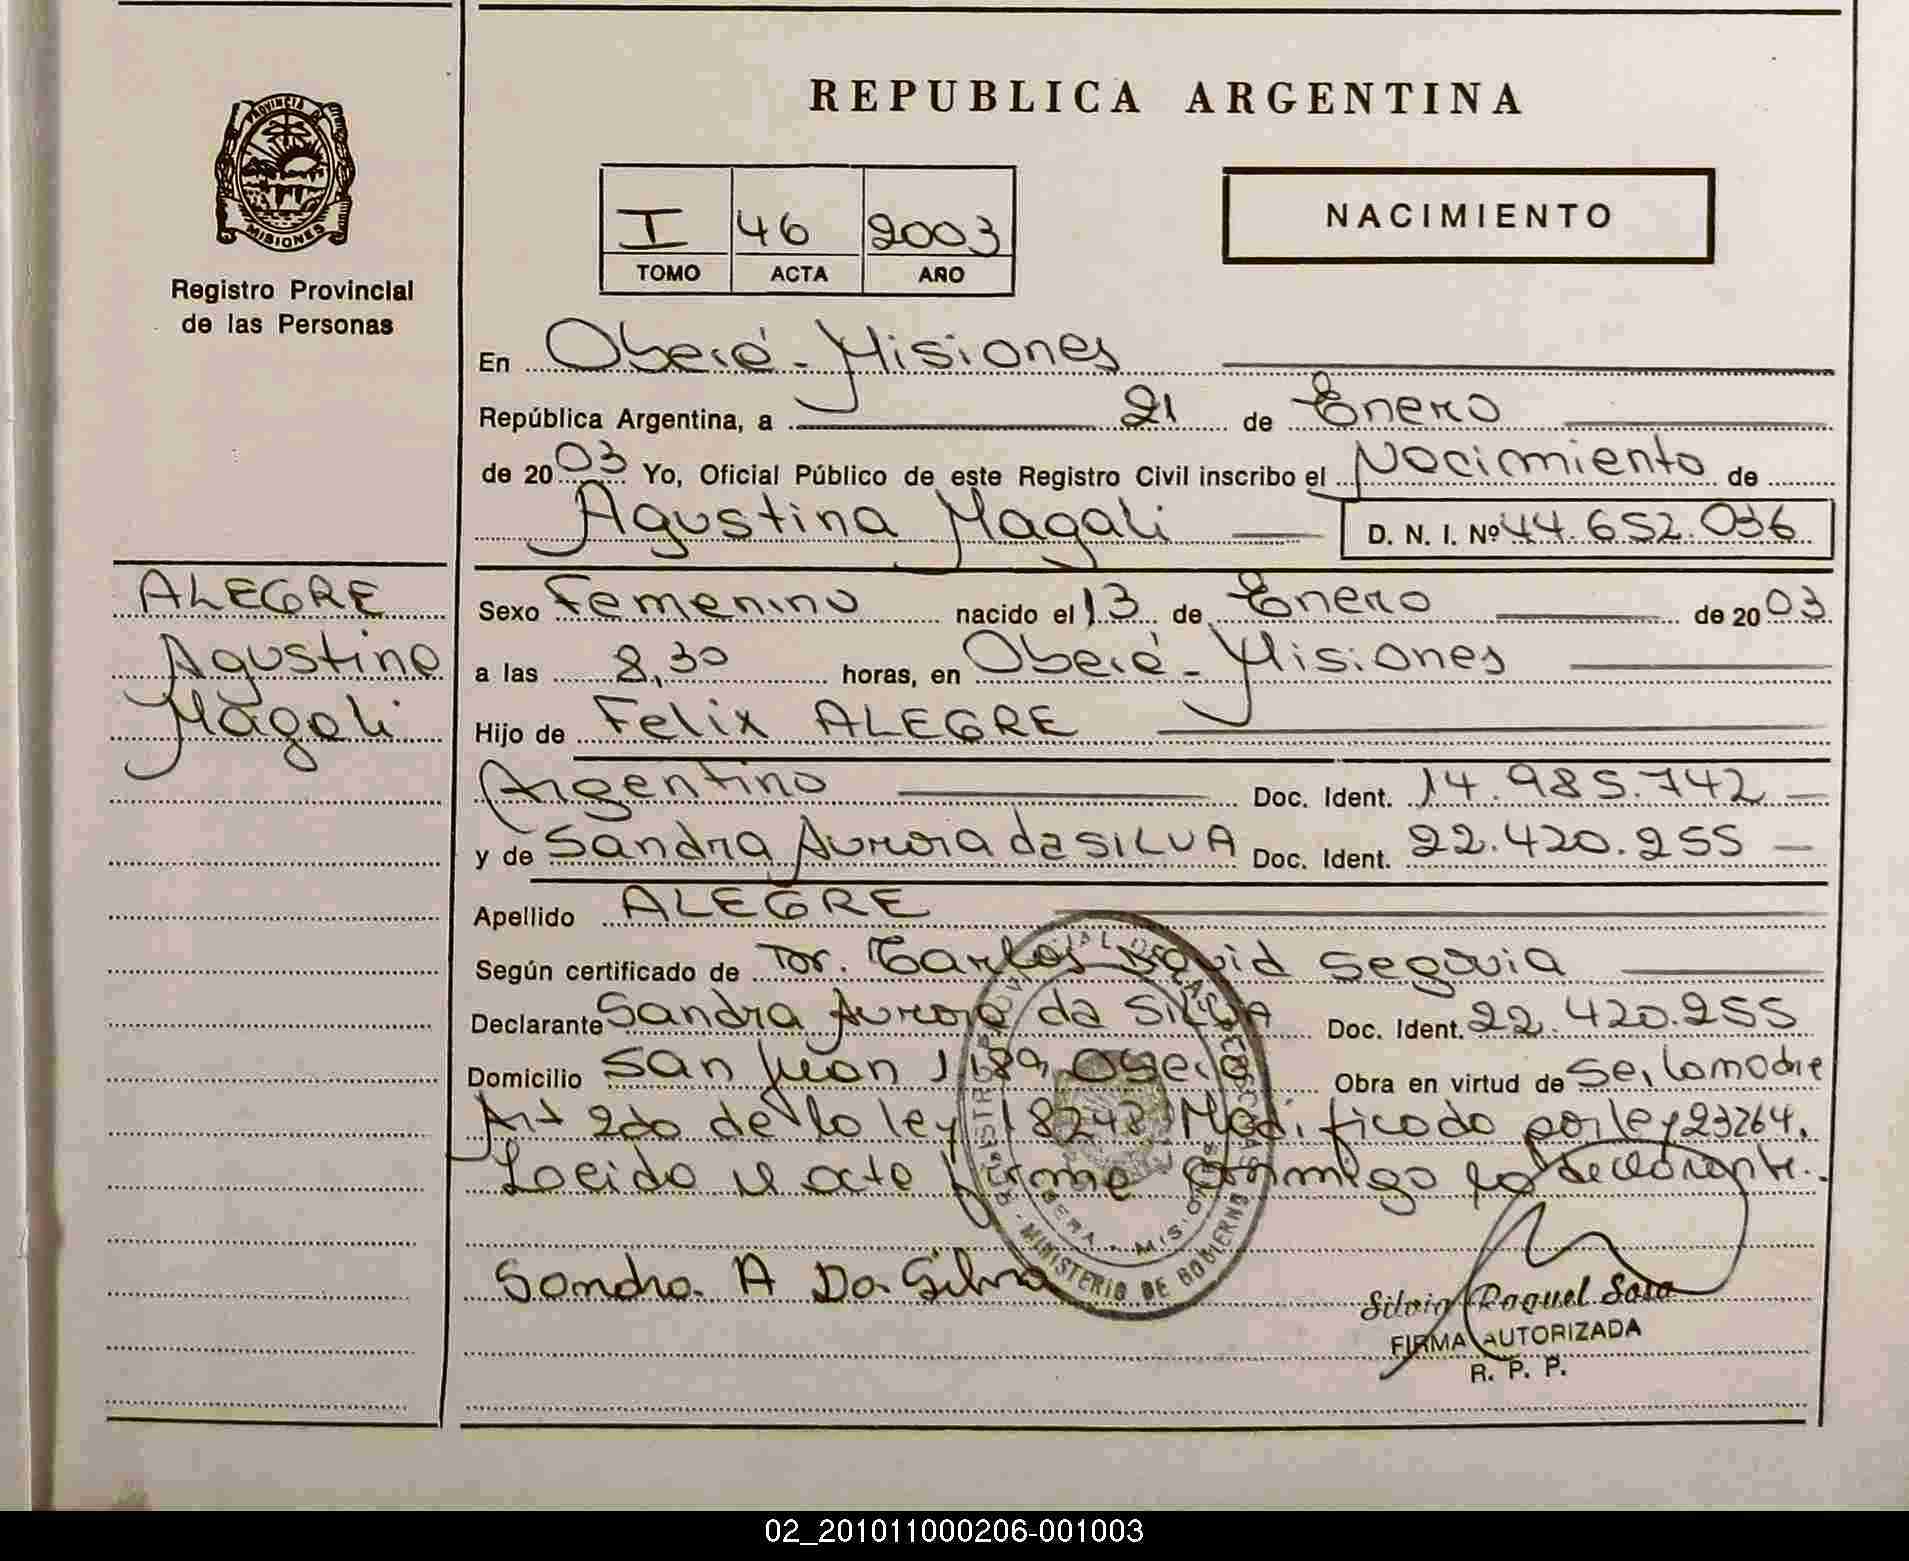 REPUBLICA ARGENTINA
PROVINCIA DE
MISIONES
Registro Provincial
de las Personas
I 46 2003
TOMO ACTA AÑO
NACIMIENTO
En Oberá - Misiones
República Argentina, a 21 de Enero
de 2003 Yo, Oficial Público de este Registro Civil inscribo el Nacimiento de
Agustina Magali D. N. I. Nº 44.652.036
ALEGRE
Agustina
Magali
Sexo Femenino nacido el 13 de Enero de 2003
a las 8,30 horas, en Oberá - Misiones
Hijo de Felix ALEGRE
Argentino Doc. Ident. 14.985.742
y de Sandra Aurora da SILVA Doc. Ident. 22.420.255
Apellido ALEGRE
Según certificado de Dr. Carlos David Segovia
Declarante Sandra Aurora da SILVA Doc. Ident. 22.420.255
Domicilio San Juan 1189, Oberá Obra en virtud de Ser la madre
Art 2do de la ley 18248 Modificado por ley 23264.
Leido el acta firma conmigo la declarante.
MINISTERIO DE GOBIERNO
Sandra A Da Silva
Silvia Raquel Sosa
FIRMA AUTORIZADA
R. P. P.
02_201011000206-001003